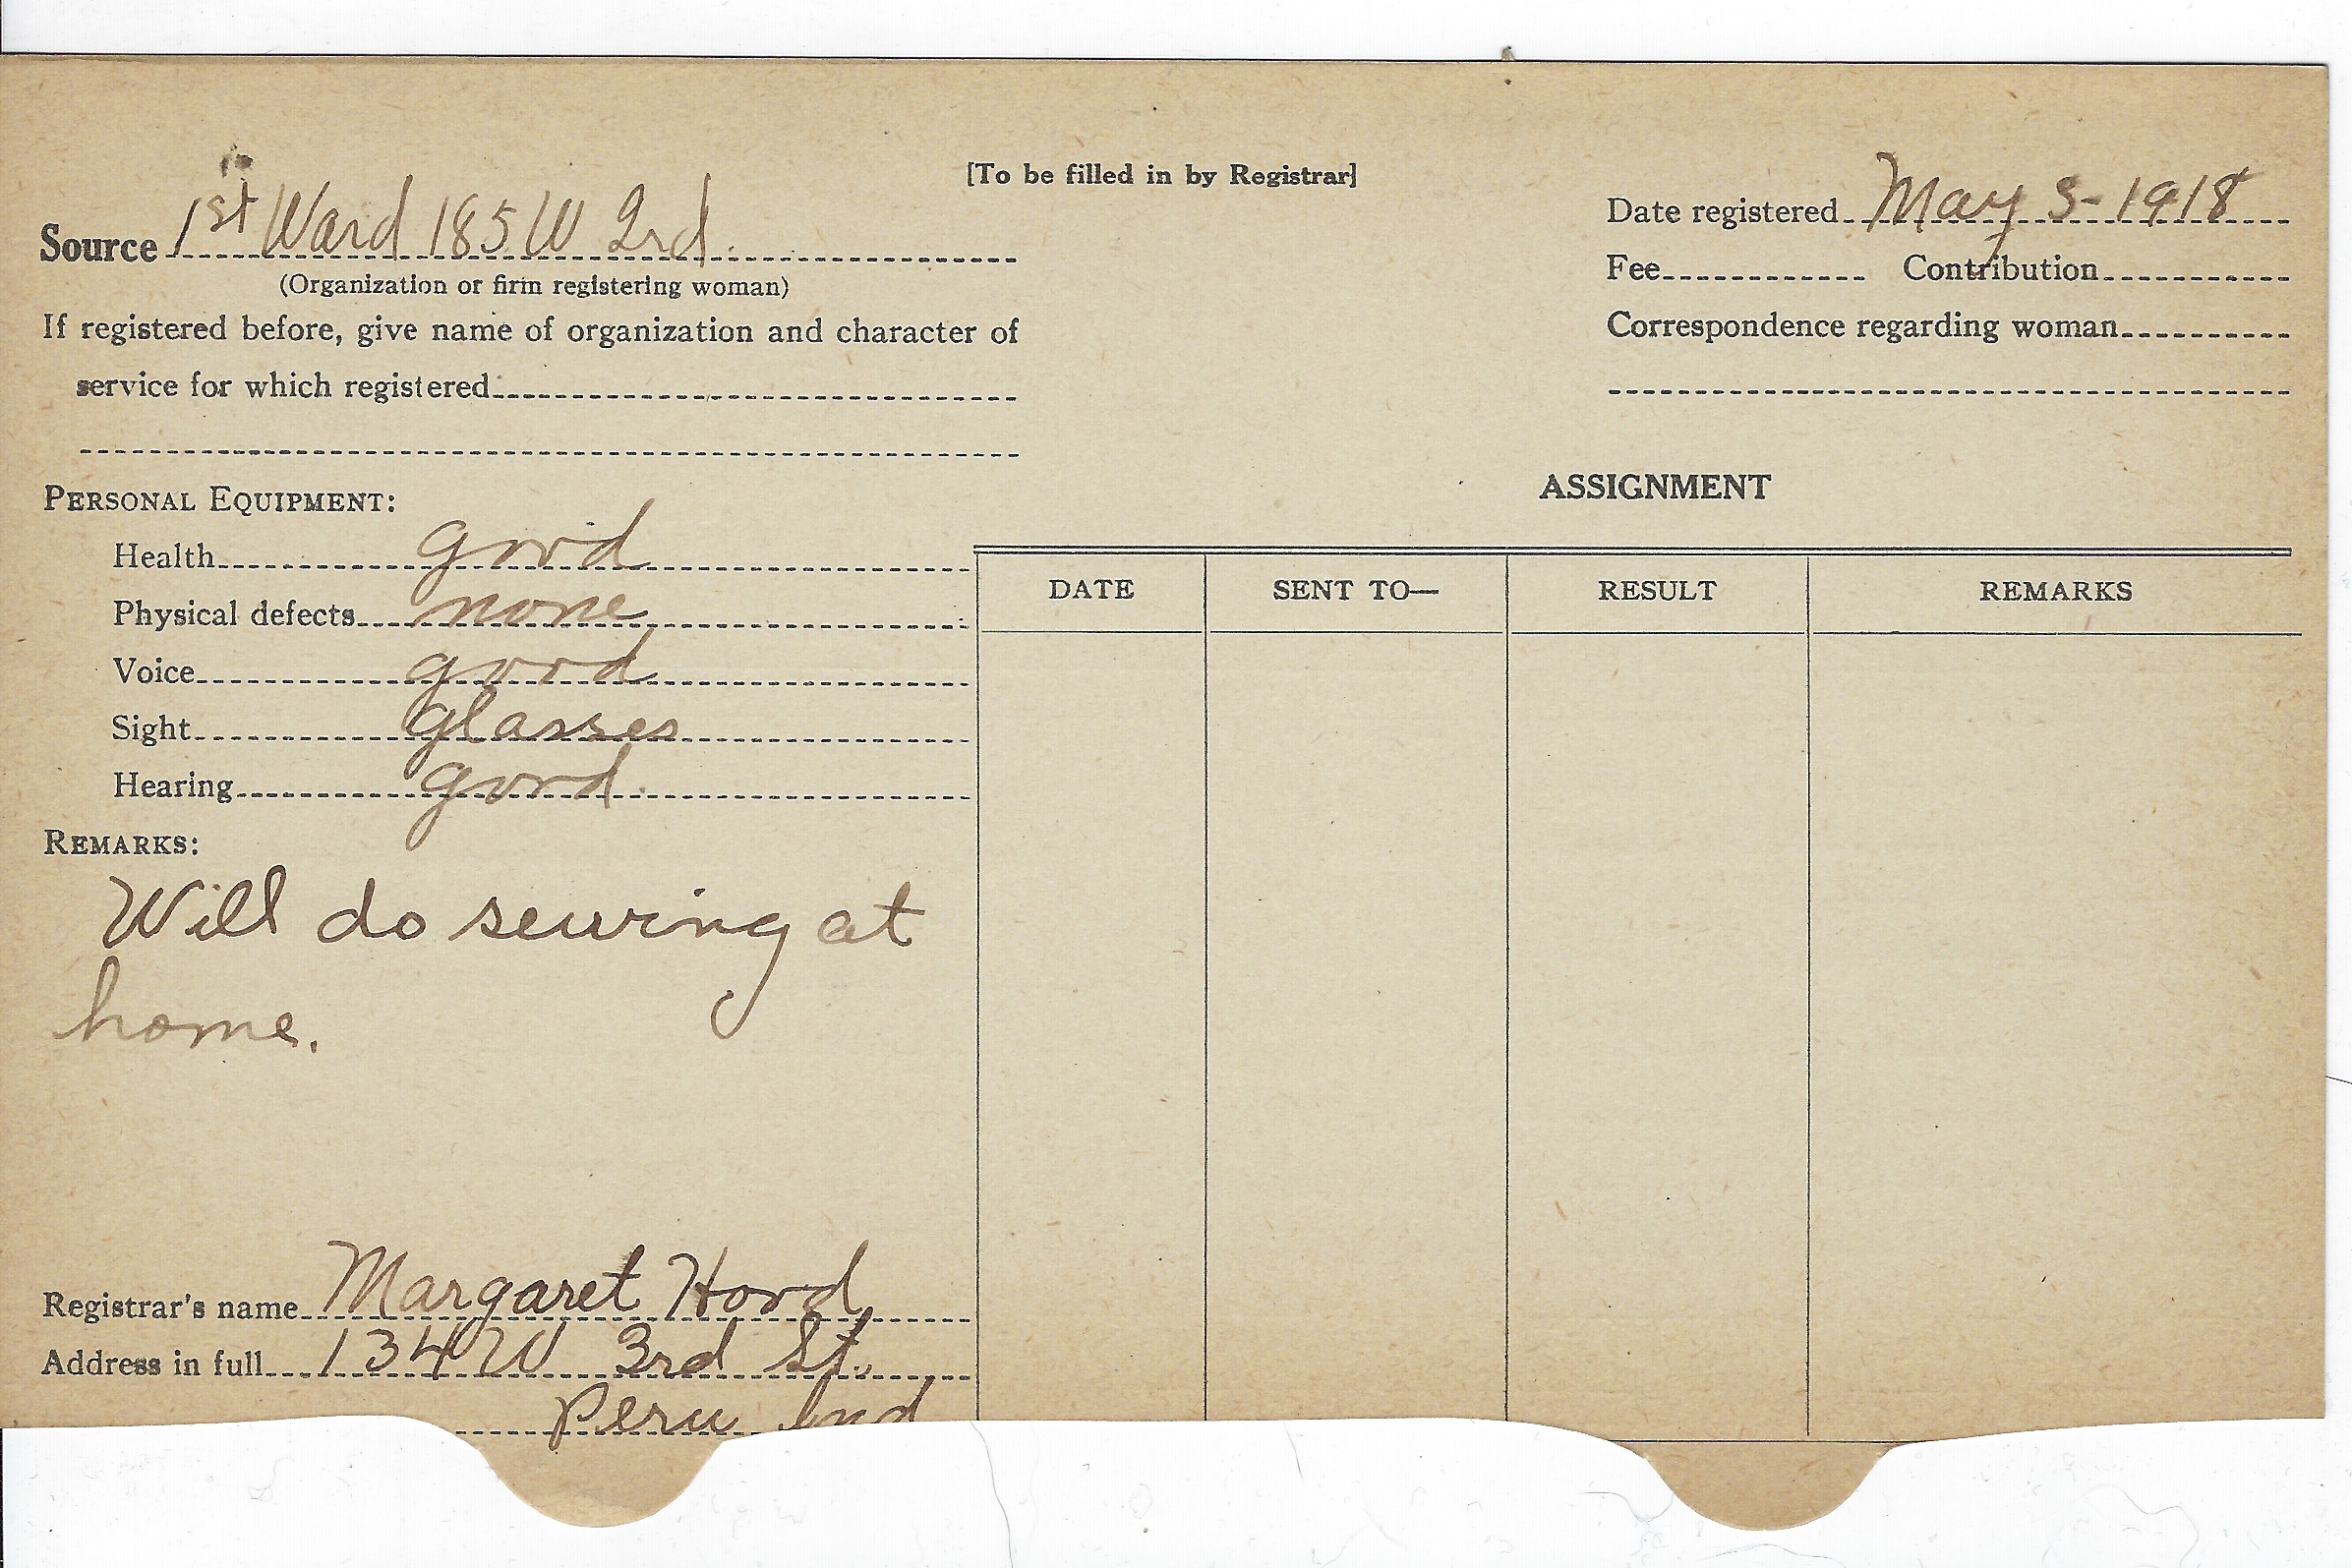 [To be filled in by Registrar]
Source 1st Ward 185 W 2nd.
(Organization or firm registering woman)
If registered before, give name of organization and character of
service for which registered
Date registered May 3-1918
Fee Contribution
Correspondence regarding woman
PERSONAL EQUIPMENT:
Health good
Physical defects none
Voice good
Sight glasses
Hearing good.
REMARKS:
Will do sewing at
home.
Registrar's name Margaret Hood
Address in full 134 W 3rd St.
Peru Ind
ASSIGNMENT
DATE SENT TO— RESULT REMARKS